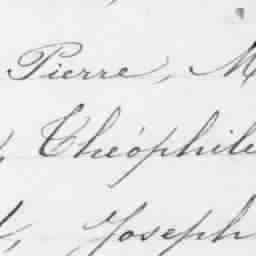 Pierre, M
Théophile
Joseph